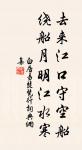 去来江口守空船
绕船月明江水寒
白居易琵琶行诗词典网
集